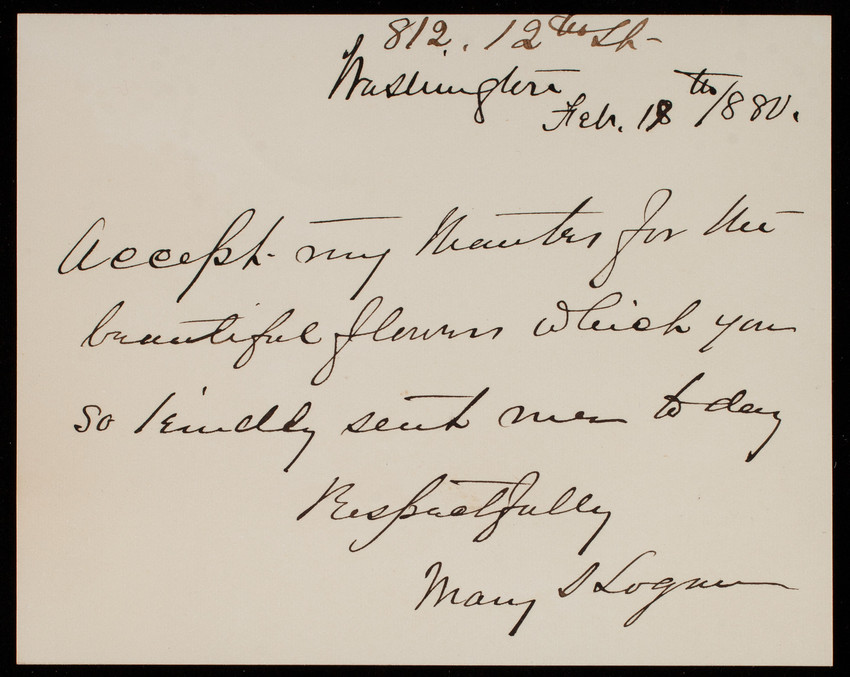 812. 12th St-
Washington
Feb. 18th/880.
Accept my thanks for the
beautiful flowers which you
so kindly sent me to day
Respectfully
Mary S Logan